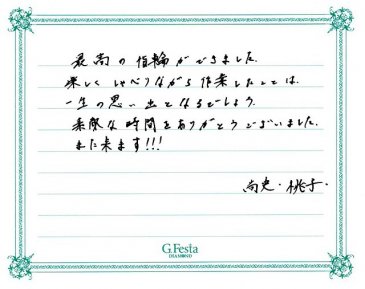 最高の指輪ができました.
楽しく しゃべりながら 作業したことは.
一生の思い出となるでしょう.
素敵な時間をありがとうございました.
また来ます!!!
尚史・桃子.
G.Festa
DIAMOND